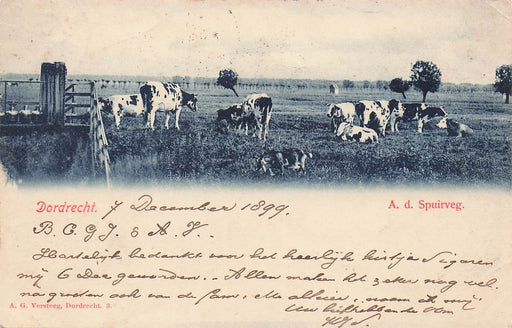 Dordrecht. 7 December 1899.
A. d. Spuirveg.
B. C. G. J. & A. V.
Hartelijk bedankt voor het heerlijke kistje Sigaren
mij 6 Dec geworden. Allen maken het zeker nog wel.
na groeten ook van de fam. noem ik mij
A. G. Versteeg, Dordrecht. 3.
Uw liefhebbende Oom